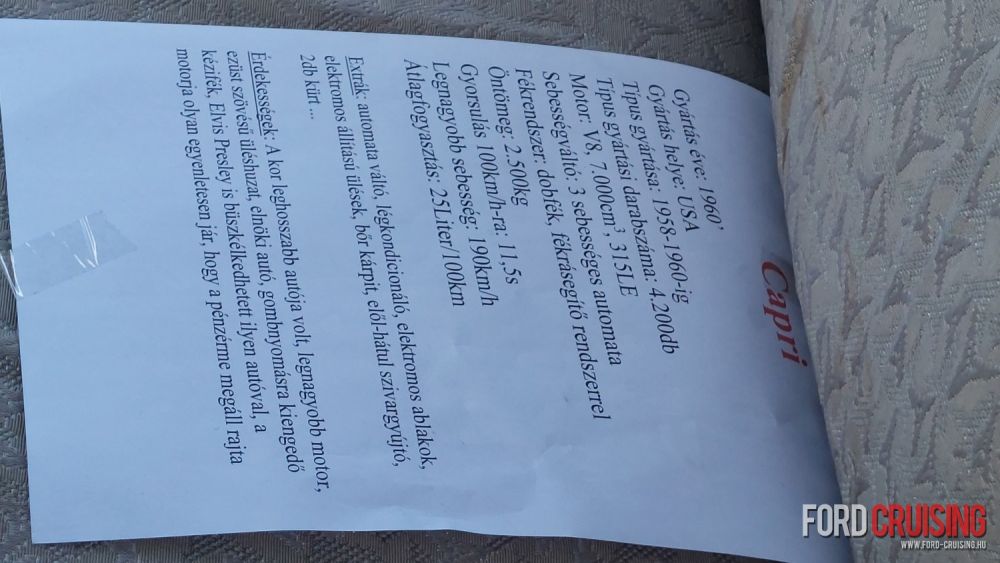 Capri
Gyártás éve: 1960'
Gyártás helye: USA
Típus gyártása: 1958-1960-ig
Típus gyártási darabszáma: 4.200db
Motor: V8, 7.000cm³, 315LE
Sebességváltó: 3 sebességes automata
Fékrendszer: dobfék, fékrásegítő rendszerrel
Öntömeg: 2.500kg
Gyorsulás 100km/h-ra: 11,5s
Legnagyobb sebesség: 190km/h
Átlagfogyasztás: 25Liter/100km
Extrák: automata váltó, légkondicionáló, elektromos ablakok,
elektromos állítású ülések, bőr kárpit, elől-hátul szivargyújtó,
2db kürt ...
Érdekességek: A kor leghosszabb autója volt, legnagyobb motor,
ezüst szövésű üléshuzat, elnöki autó, gombnyomásra kiengedő
kézifék, Elvis Presley is büszkélkedhetett ilyen autóval, a
motorja olyan egyenletesen jár, hogy a pénzérme megáll rajta
FORD CRUISING
WWW.FORD-CRUISING.HU